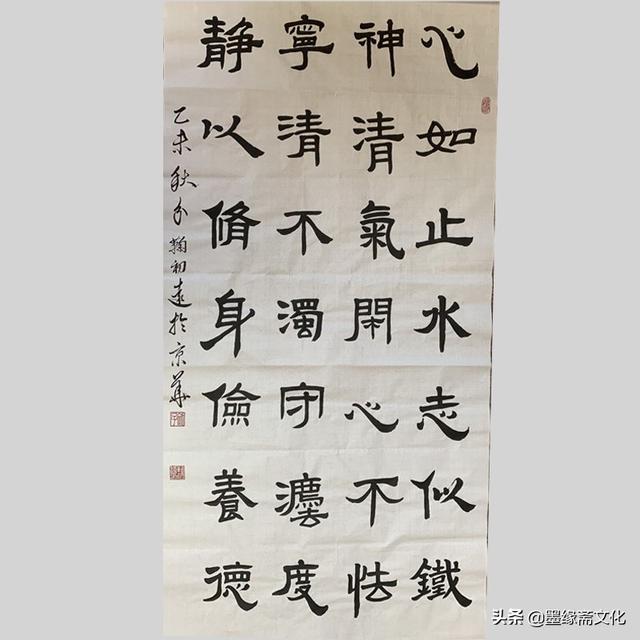 心如止水志似鐵
神清氣閑心不怯
寧清不濁守灋度
静以脩身儉養德
乙未秋月鞠初遠於京華
头条 @墨缘斋文化